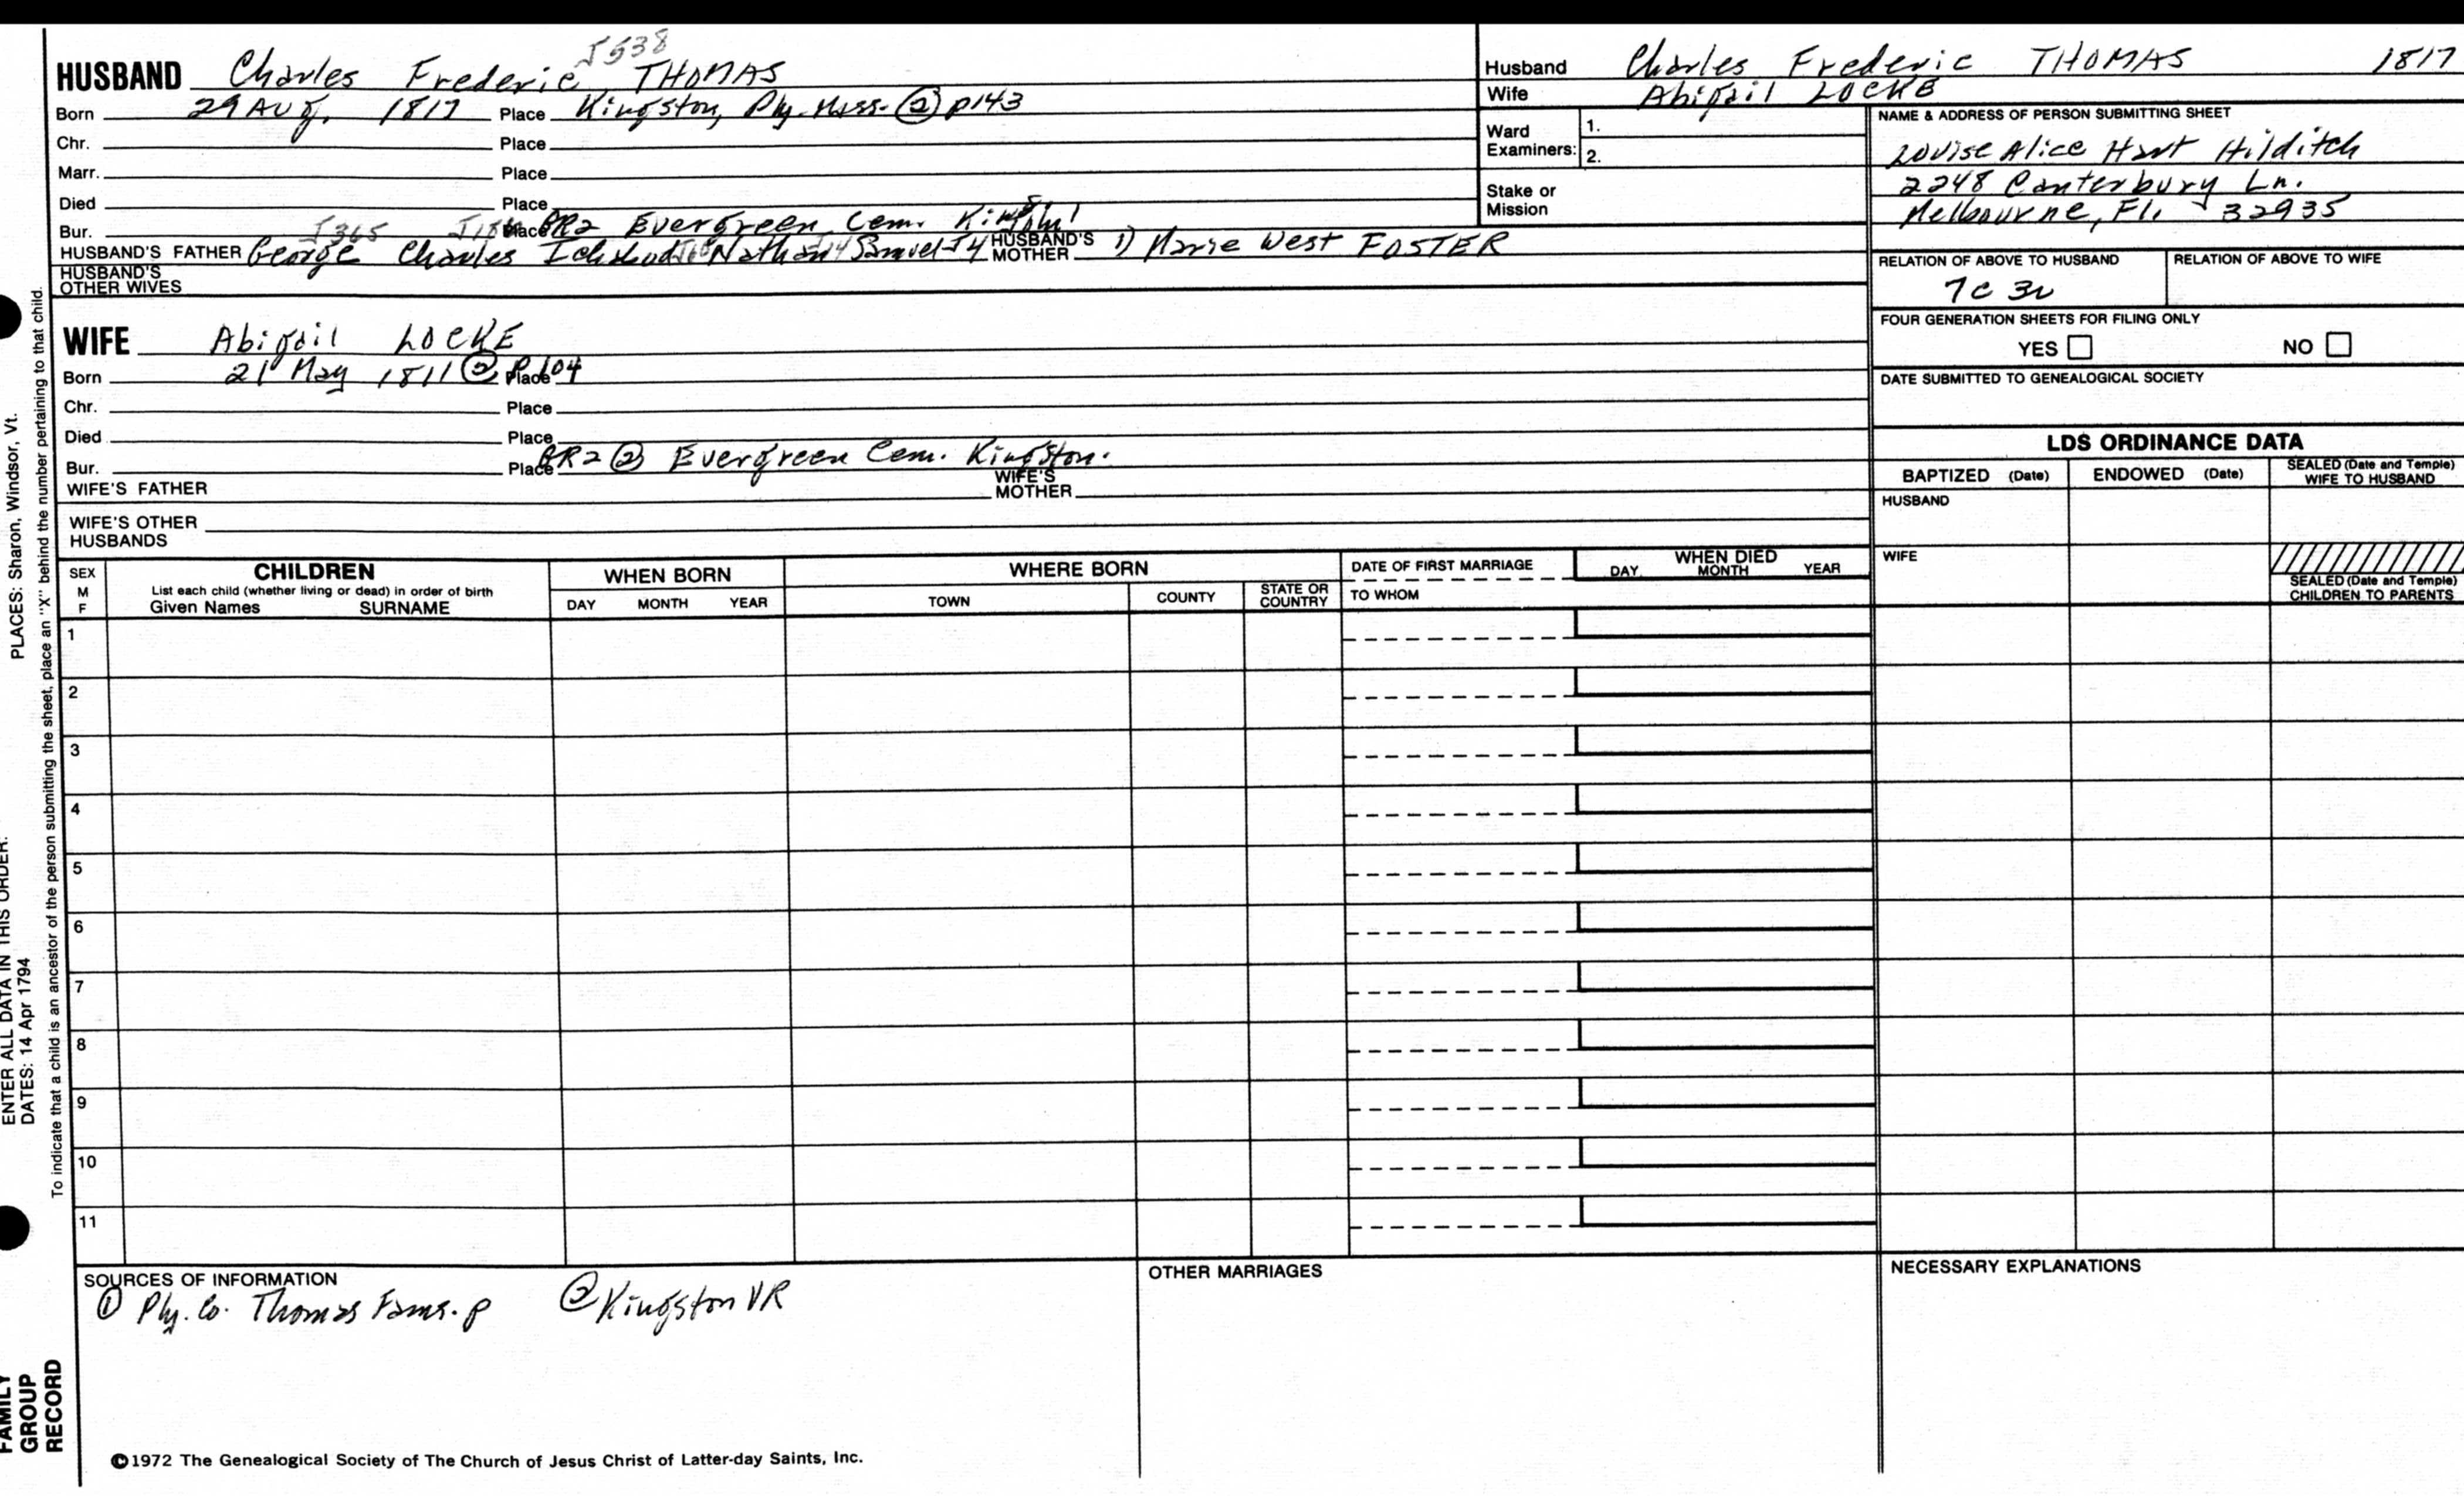 J538
HUSBAND Charles Frederic THOMAS
Born 29 Aug. 1817 Place Kingston, Ply. Mass. ② p143
Chr. Place
Marr. Place
Died Place
Bur. Place GR2 Evergreen Cem.
J365
HUSBAND'S FATHER George Charles Ichabod Nathan Samuel J4 HUSBAND'S MOTHER 1) Marie West FOSTER
HUSBAND'S OTHER WIVES
WIFE Abigail LOCKE
Born 21 May 1811 ② P104 Place
Chr. Place
Died Place
Bur. Place GR2 ② Evergreen Cem. Kingston.
WIFE'S FATHER WIFE'S MOTHER
WIFE'S OTHER HUSBANDS
Husband Charles Frederic THOMAS 1817
Wife Abigail LOCKE
Ward Examiners: 1.
2.
Stake or Mission
NAME & ADDRESS OF PERSON SUBMITTING SHEET
Louise Alice Hart Hilditch
2248 Canterbury Ln.
Melbourne, Fl. 32935
RELATION OF ABOVE TO HUSBAND RELATION OF ABOVE TO WIFE
7c 3r
FOUR GENERATION SHEETS FOR FILING ONLY
YES NO
DATE SUBMITTED TO GENEALOGICAL SOCIETY
LDS ORDINANCE DATA
BAPTIZED (Date) ENDOWED (Date) SEALED (Date and Temple) WIFE TO HUSBAND
HUSBAND
WIFE
SEALED (Date and Temple) CHILDREN TO PARENTS
SEX M F
CHILDREN
List each child (whether living or dead) in order of birth
Given Names SURNAME
WHEN BORN
DAY MONTH YEAR
WHERE BORN
TOWN COUNTY STATE OR COUNTRY
DATE OF FIRST MARRIAGE
TO WHOM
WHEN DIED
DAY MONTH YEAR
1
2
3
4
5
6
7
8
9
10
11
SOURCES OF INFORMATION
① Ply. Co. Thomas Fams. p ② Kingston VR
OTHER MARRIAGES
NECESSARY EXPLANATIONS
©1972 The Genealogical Society of The Church of Jesus Christ of Latter-day Saints, Inc.
FAMILY GROUP RECORD
ENTER ALL DATA IN THIS ORDER:
DATES: 14 Apr 1794
PLACES: Sharon, Windsor, Vt.
To indicate that a child is an ancestor of the person submitting the sheet, place an "X" behind the number pertaining to that child.